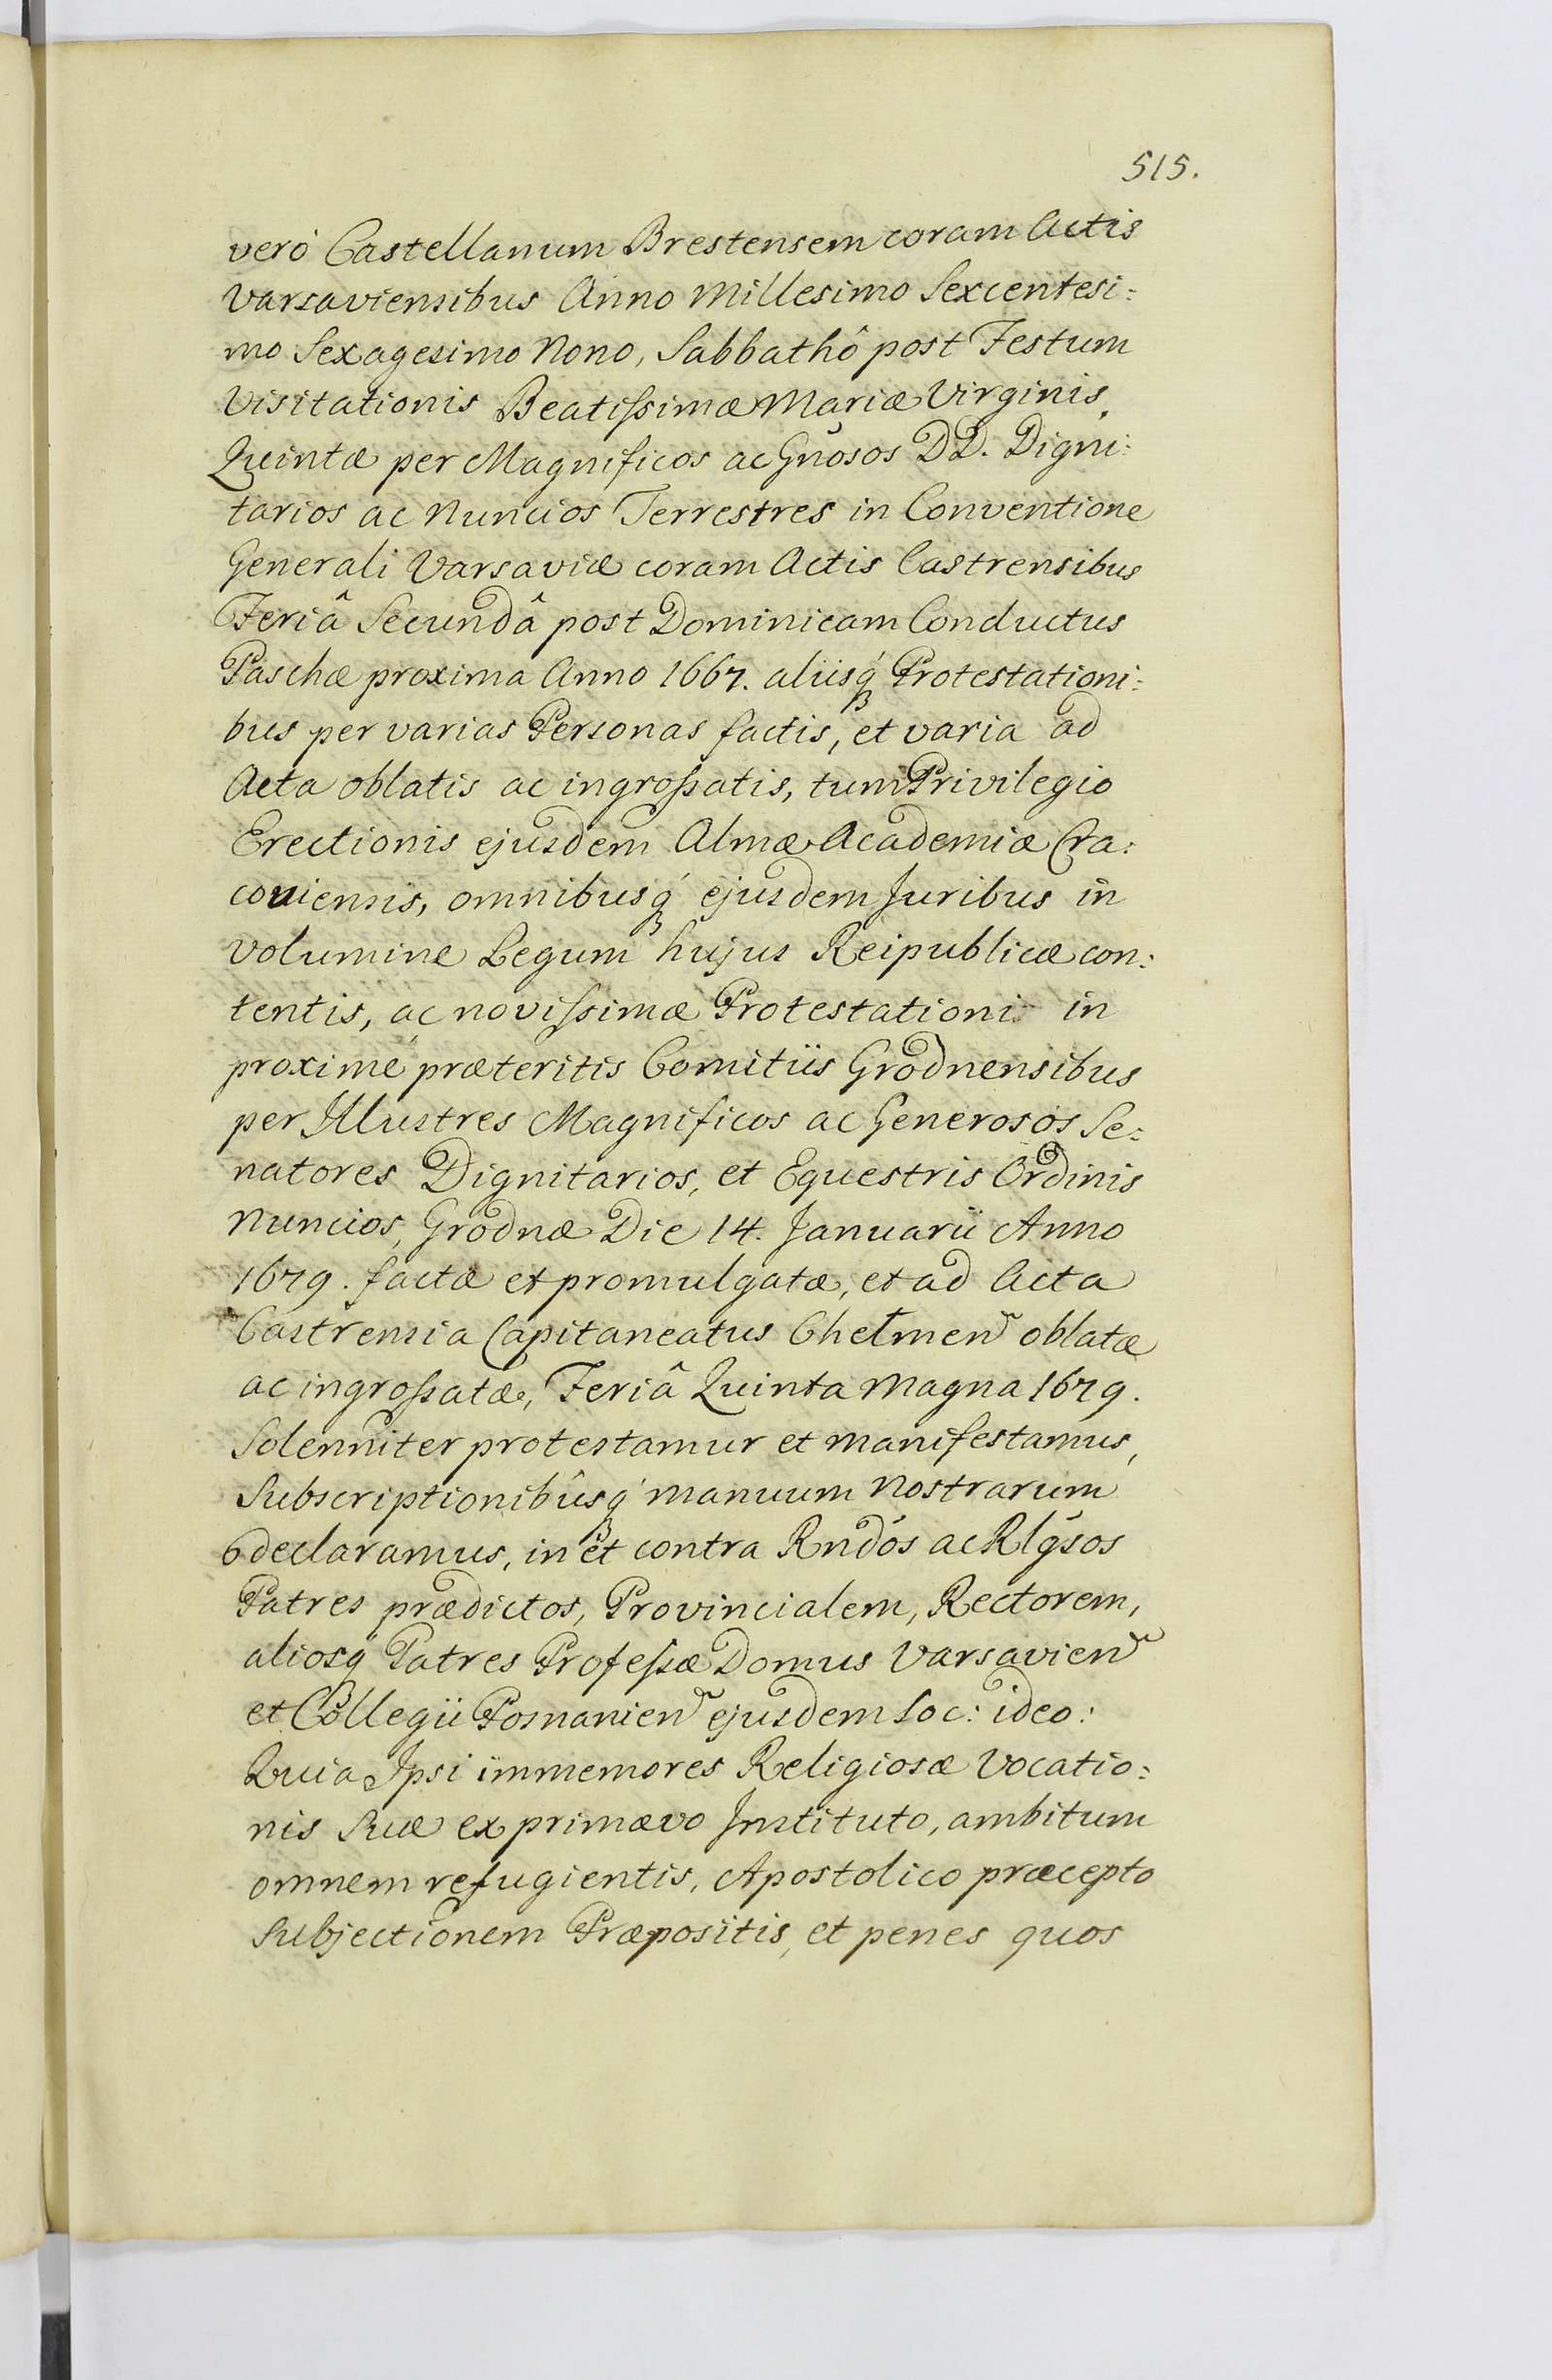 515.
verò Castellanum Brestensem coram Actis
Varsaviensibus Anno Millesimo Sexcentesi:
mo Sexagesimo Nono, Sabbathô post Festum
Visitationis Beatissimæ Mariæ Virginis,
Quintæ per Magnificos ac Gnosos DD. Digni:
tarios ac Nuncios Terrestres in Conventione
Generali Varsaviæ coram Actis Castrensibus
Feriâ Secundâ post Dominicam Conductus
Paschæ proxima Anno 1667. aliisq́ Protestationi:
bus per varias Personas factis, et varia ad
Acta oblatis ac ingrossatis, tum Privilegio
Erectionis ejusdem Almæ Academiæ Cra:
coviensis, omnibusq́ ejusdem Juribus in
volumine Legum hujus Reipublicæ con:
tentis, ac novissimæ Protestationi in
proximè præteritis Comitiis Grodnensibus
per Illustres Magnificos ac Generosos Se:
natores Dignitarios, et Equestris Ordinis
Nuncios, Grodnæ Die 14. Januarii Anno
1679. factæ et promulgatæ, et ad Acta
Castrensia Capitaneatus Chełmen̄ oblatæ
ac ingrossatæ, Feriâ Quinta Magna 1679.
Solenniter protestamur et manifestamus,
Subscriptionibusq́ manuum Nostrarum
declaramus, in et contra Rndos ac Rlgsos
Patres prædictos, Provincialem, Rectorem,
aliosq́ Patres Professæ Domus Varsavien̄
et Collegii Posnanien̄ ejusdem Soc: ideo:
Quia Ipsi immemores Religiosæ Vocatio:
nis Suæ ex primævo Instituto, ambitum
omnem refugientis, Apostolico præcepto
Subjectionem Præpositis, et penes quos